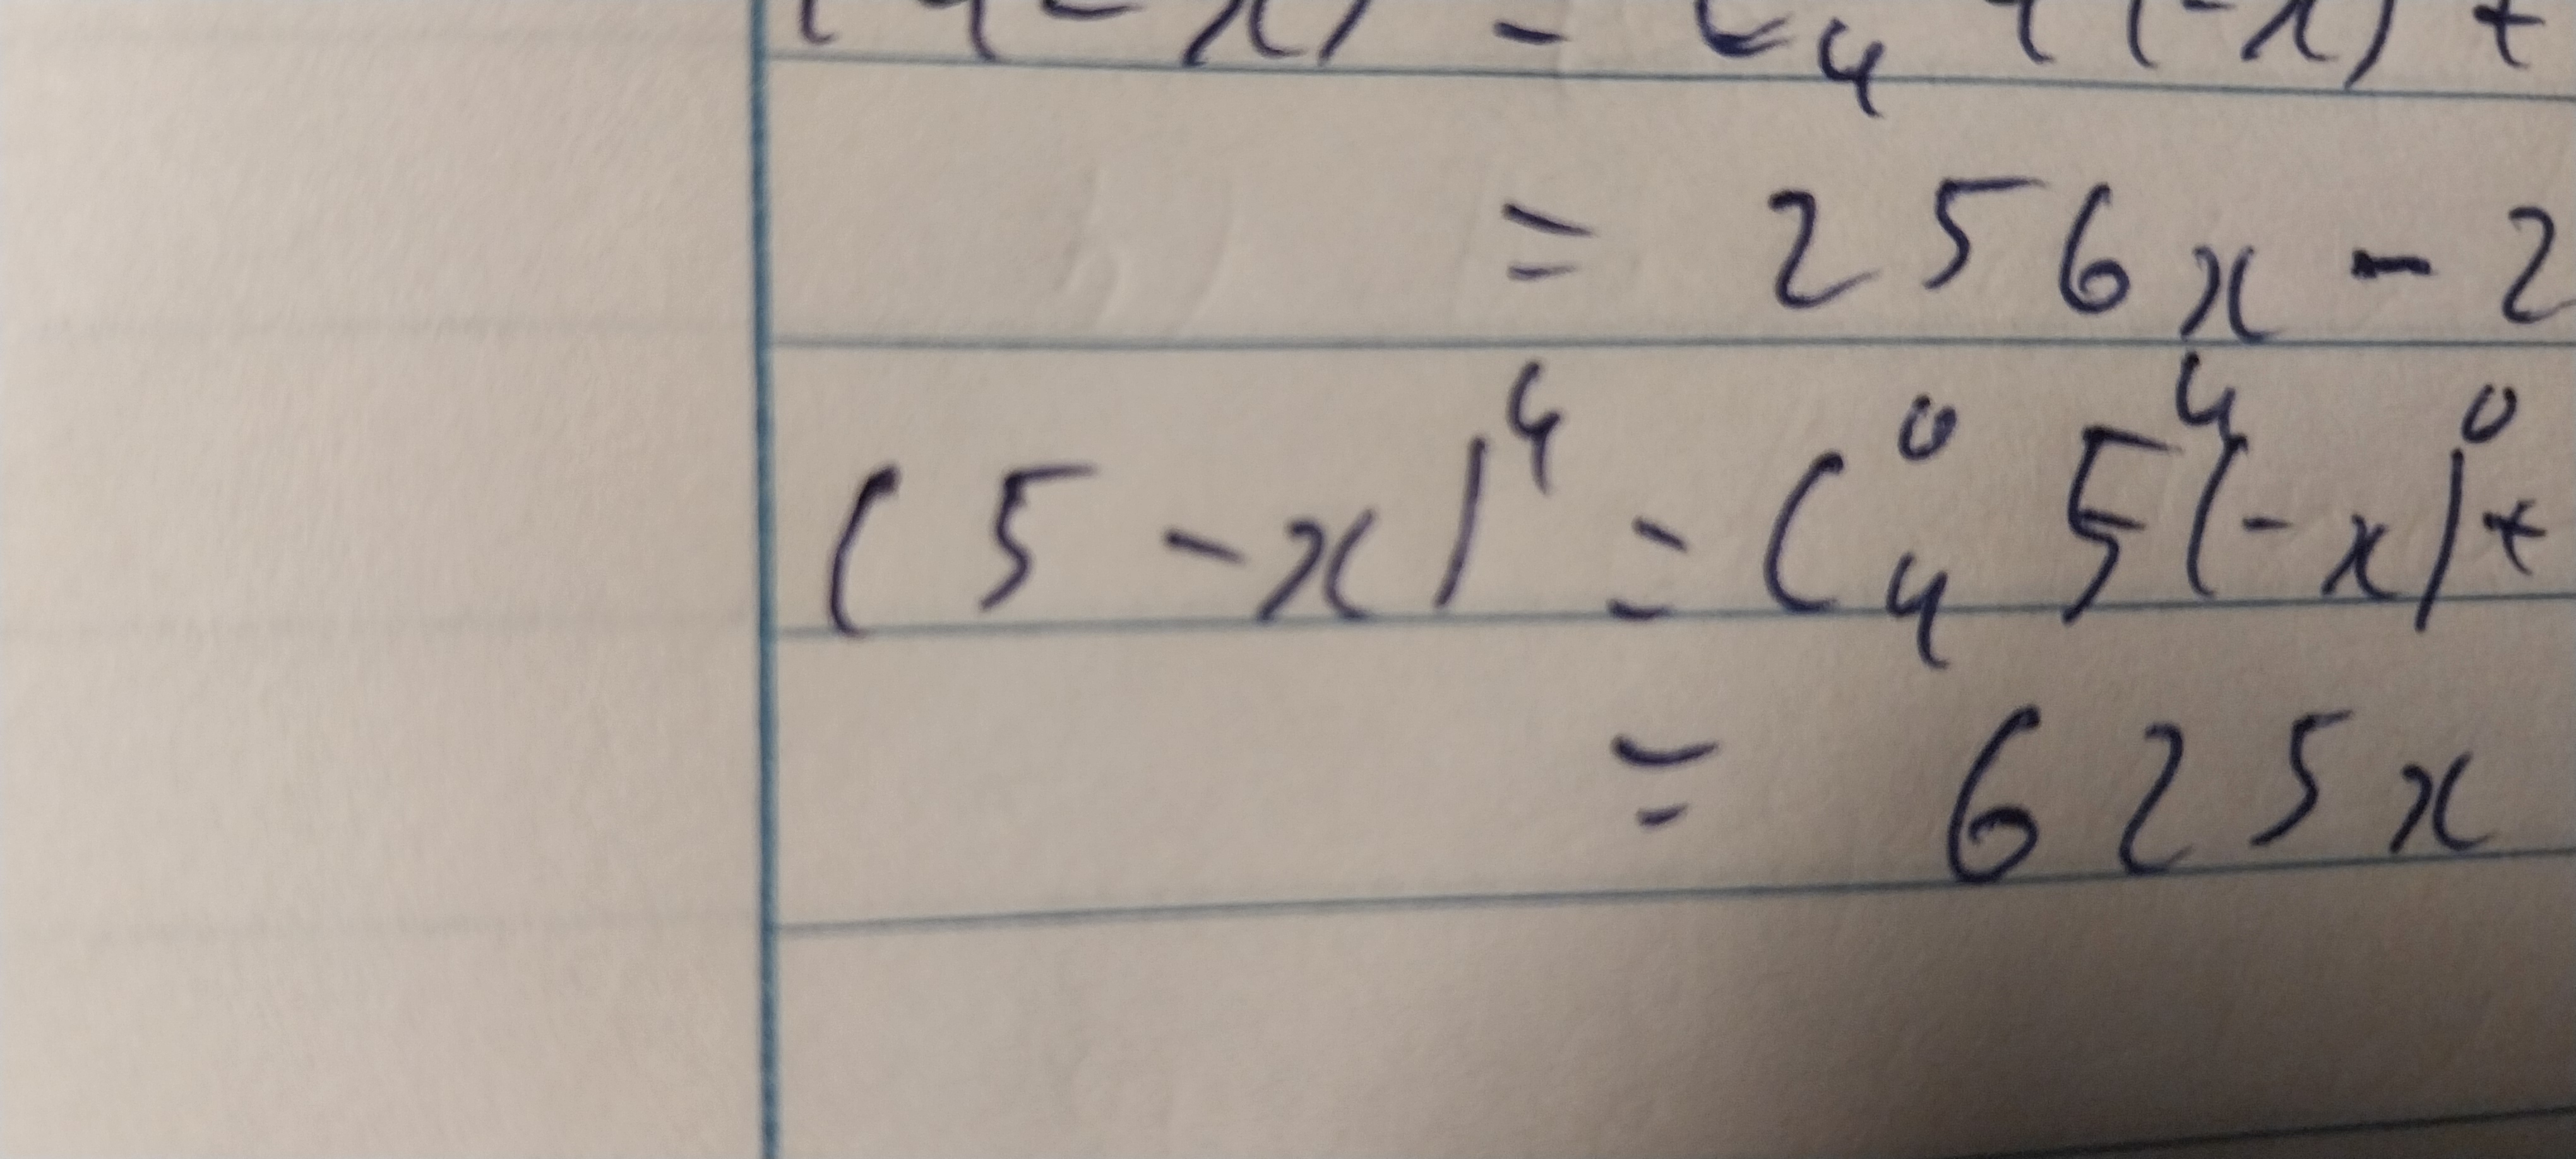 (4-x) = C₄ 4(-x) +
= 256x - 2
(5-x)⁴ = C₄⁰ 5⁴(-x)⁰ +
= 625x